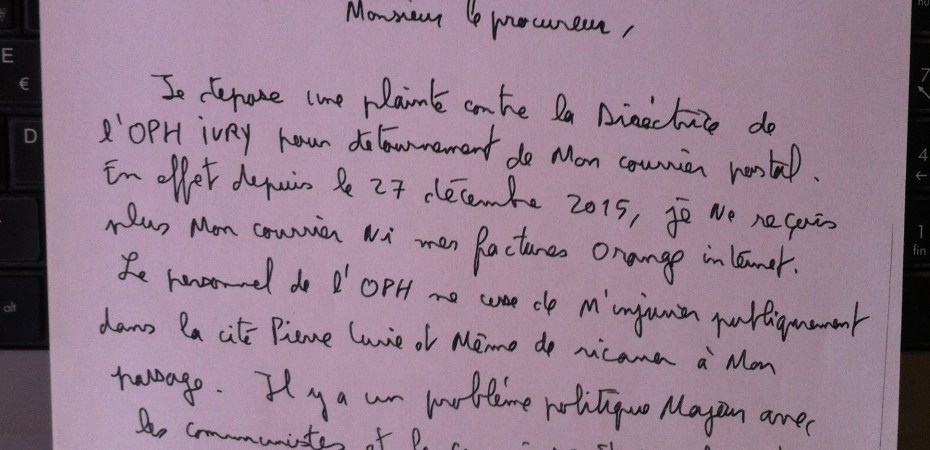 Monsieur le procureur,
Je depose une plainte contre la Diréctrice de
l'OPH iVRY pour detournement de Mon courrier postal.
En effet depuis le 27 décembre 2015, je Ne reçois
plus Mon courrier Ni mes factures Orange internet.
Le personnel de l'OPH ne cesse de M'injurier publiquement
dans la cité Pierre Curie et Même de ricaner à Mon
passage. Il y a un problème politique Majeur avec
les communistes et
E
€
D
alt
7
4
←
1
fin